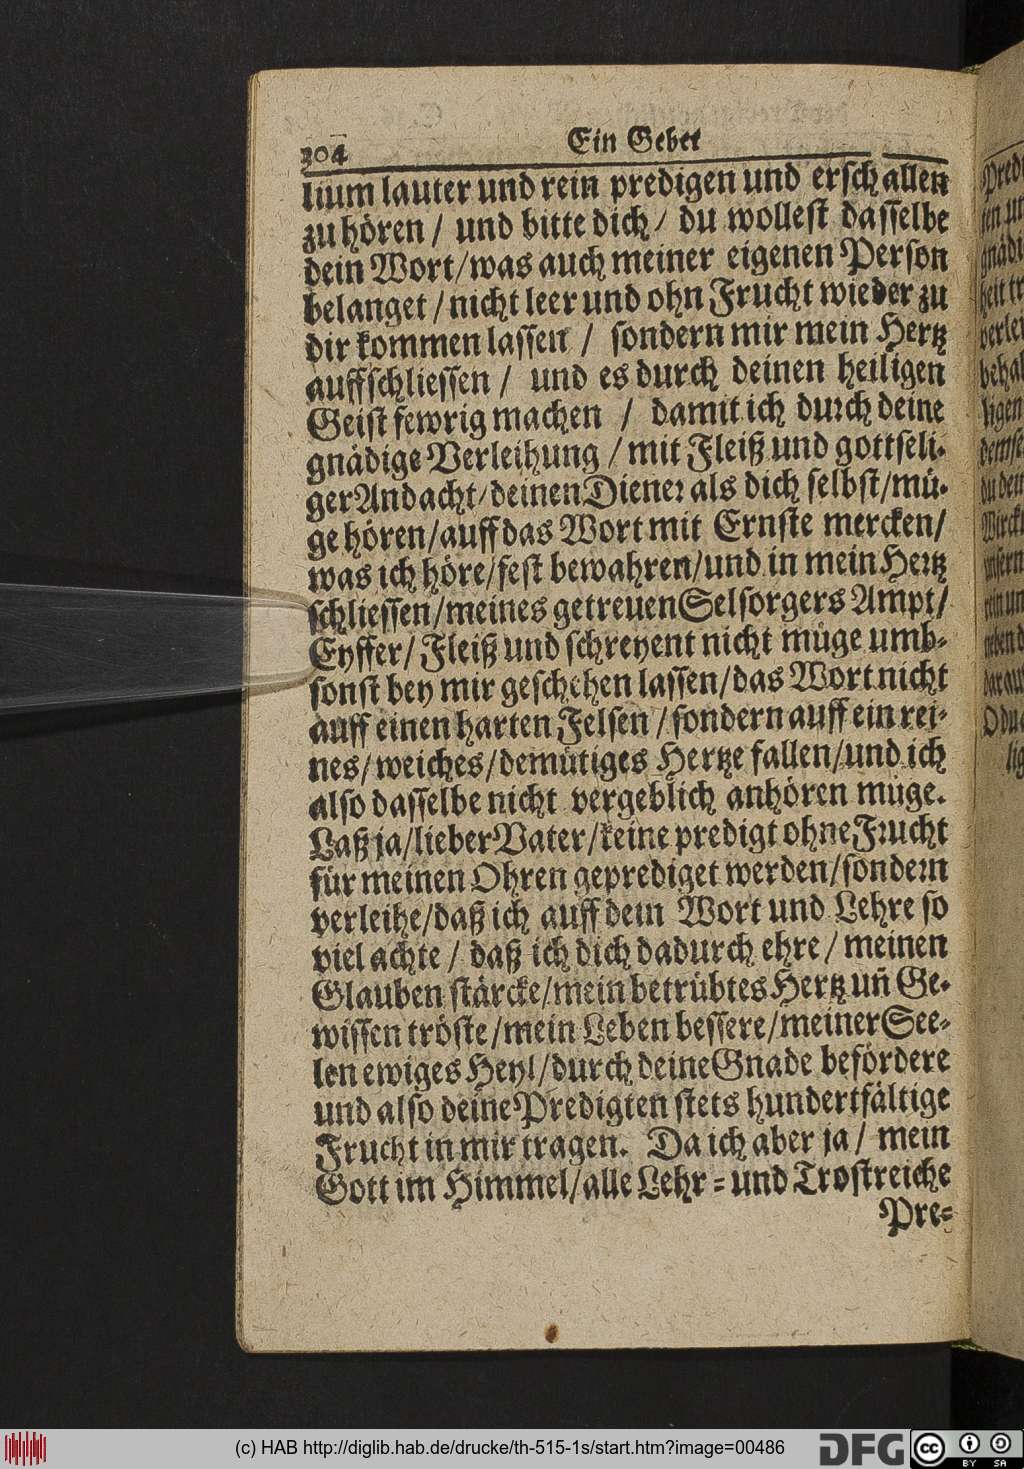 304 Ein Gebet
lium lauter und rein predigen und erschallen
zu hören / und bitte dich / du wollest dasselbe
dein Wort / was auch meiner eigenen Person
belanget / nicht leer und ohn Frucht wieder zu
dir kommen lassen / sondern mir mein Hertz
auffschliessen / und es durch deinen heiligen
Geist fewrig machen / damit ich durch deine
gnädige Verleihung / mit Fleiß und gottseli-
ger Andacht / deinen Diener als dich selbst / mü-
ge hören / auff das Wort mit Ernste mercken /
was ich höre / fest bewahren / und in mein Hertz
schliessen / meines getreuen Selsorgers Ampt /
Eyffer / Fleiß und schreyent nicht müge umb-
sonst bey mir geschehen lassen / das Wort nicht
auff einen harten Felsen / sondern auff ein rei-
nes / weiches / demütiges Hertze fallen / und ich
also dasselbe nicht vergeblich anhören müge.
Laß ja / lieber Vater / keine predigt ohne Frucht
für meinen Ohren geprediget werden / sondern
verleihe / daß ich auff dein Wort und Lehre so
viel achte / daß ich dich dadurch ehre / meinen
Glauben stärcke / mein betrübtes Hertz uñ Ge-
wissen tröste / mein Leben bessere / meiner See-
len ewiges Heyl / durch deine Gnade befördere
und also deine Predigten stets hundertfältige
Frucht in mir tragen. Da ich aber ja / mein
Gott im Himmel / alle Lehr- und Trostreiche
Pre-
(c) HAB http://diglib.hab.de/drucke/th-515-1s/start.htm?image=00486
DFG
cc BY SA